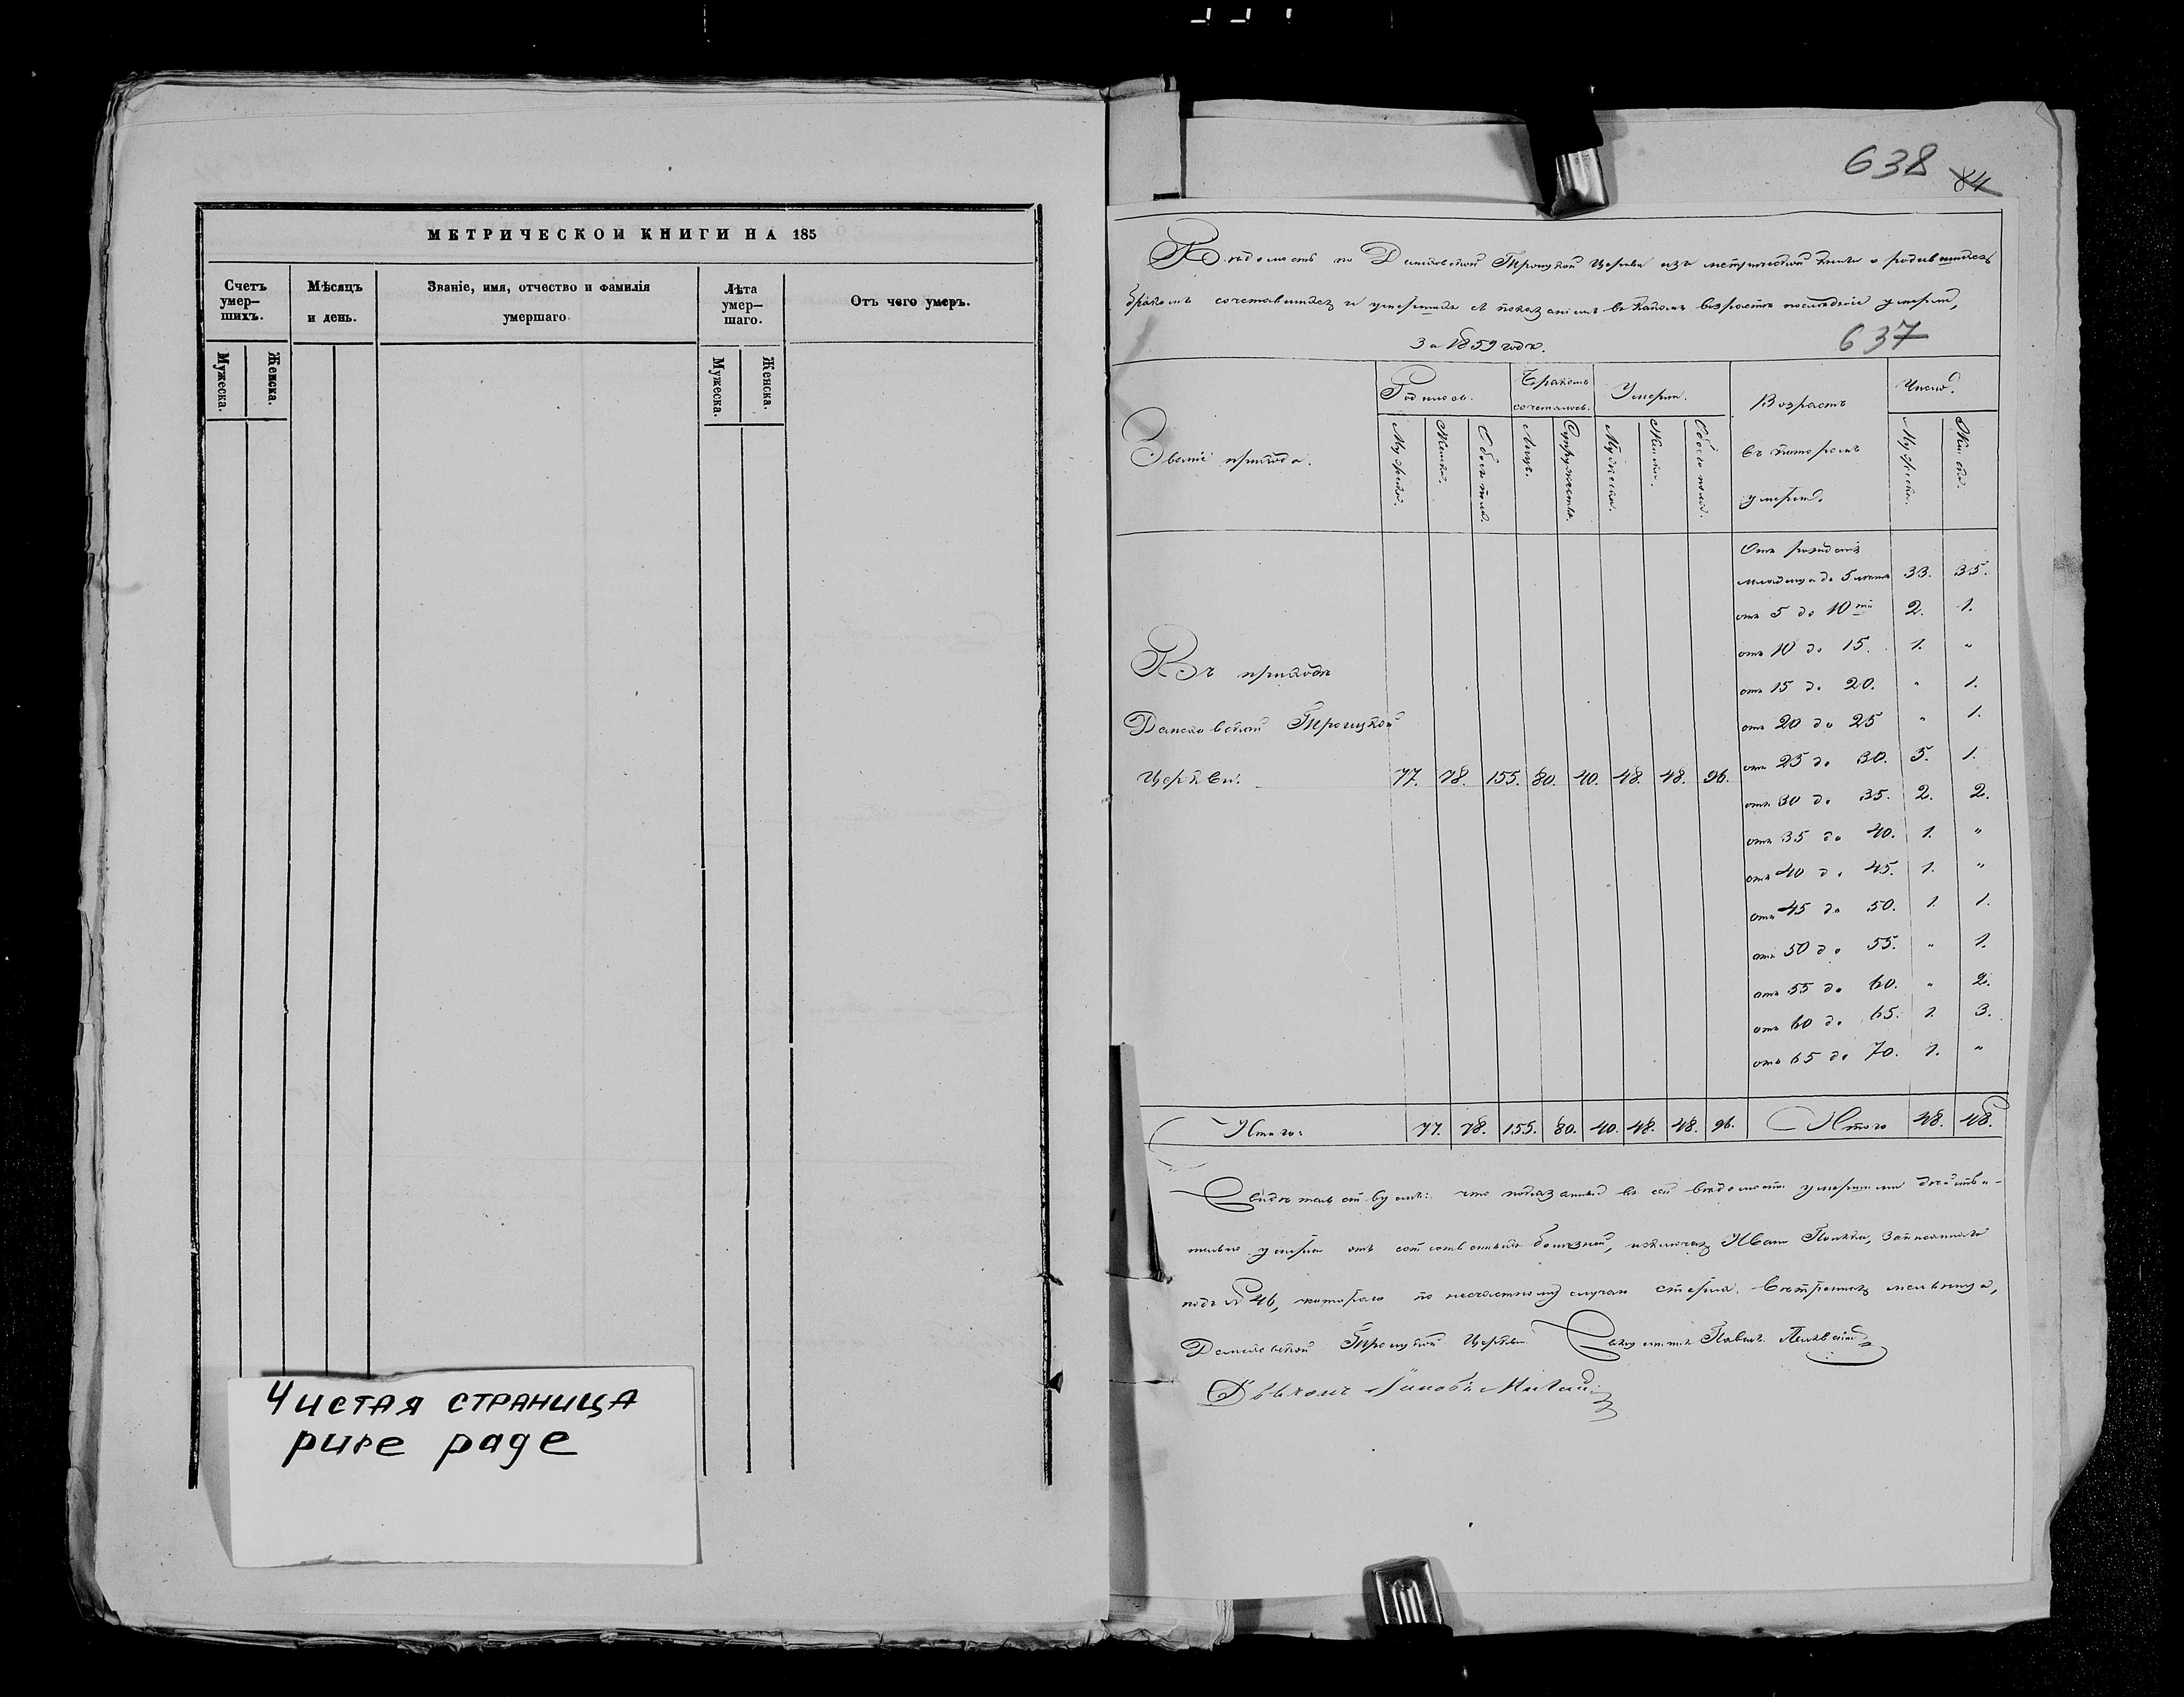 МЕТРИЧЕСКОЙ КНИГИ НА 185
Счетъ умер— шихъ.
Мѣсяцъ и день.
Званіе, имя, отчество и фамилія умершаго
Лѣта умер— шаго.
Отъ чего умеръ.
Мужеска.
Женска.
Мужеска.
Женска.
Чистая страница
pure page
638 84
Вѣдомость по Троицкой Церкви изъ метрической книги о родившихся
бракомъ сочетавшихся и умершихъ съ показаніемъ въ какомъ возрастѣ послѣдніе умерли,
За 1859 годъ.
637
Званіе прихода.
Родилось.
Бракомъ сочеталось.
Умерли.
Возрастъ въ которомъ умерли.
Число.
Мужска.
Женска.
Обоего пола.
Лицъ.
Супружествъ.
Мужеска.
Женска.
Обоего пола.
Мужеска.
Женска.
Отъ рожденія
младенца до 5 лѣтъ 33. 35.
отъ 5 до 10ти 2. 1.
отъ 10 до 15. 1. "
отъ 15 до 20. " 1.
отъ 20 до 25 " 1.
отъ 25 до 30. 5. 1.
отъ 30 до 35. 2. 2.
отъ 35 до 40. 1. "
отъ 40 до 45. 1. "
отъ 45 до 50. 1. 1.
отъ 50 до 55. " 1.
отъ 55 до 60. " 2.
отъ 60 до 65. 1. 3.
отъ 65 до 70. 1. "
Въ приходѣ
Троицкой
Церкви. 77. 78. 155. 80. 40. 48. 48. 96.
Итого: 77. 78. 155. 80. 40. 48. 48. 96. Итого 48. 48.
Свидѣтельствуемъ: что показанные въ сей вѣдомости умершими дѣйстви-
тельно умерли отъ естественныхъ болѣзней, исключая Ивана записаннаго
подъ № 46, котораго по несчастному случаю стерла мельница,
Троицкой Церкви Священникъ Павелъ